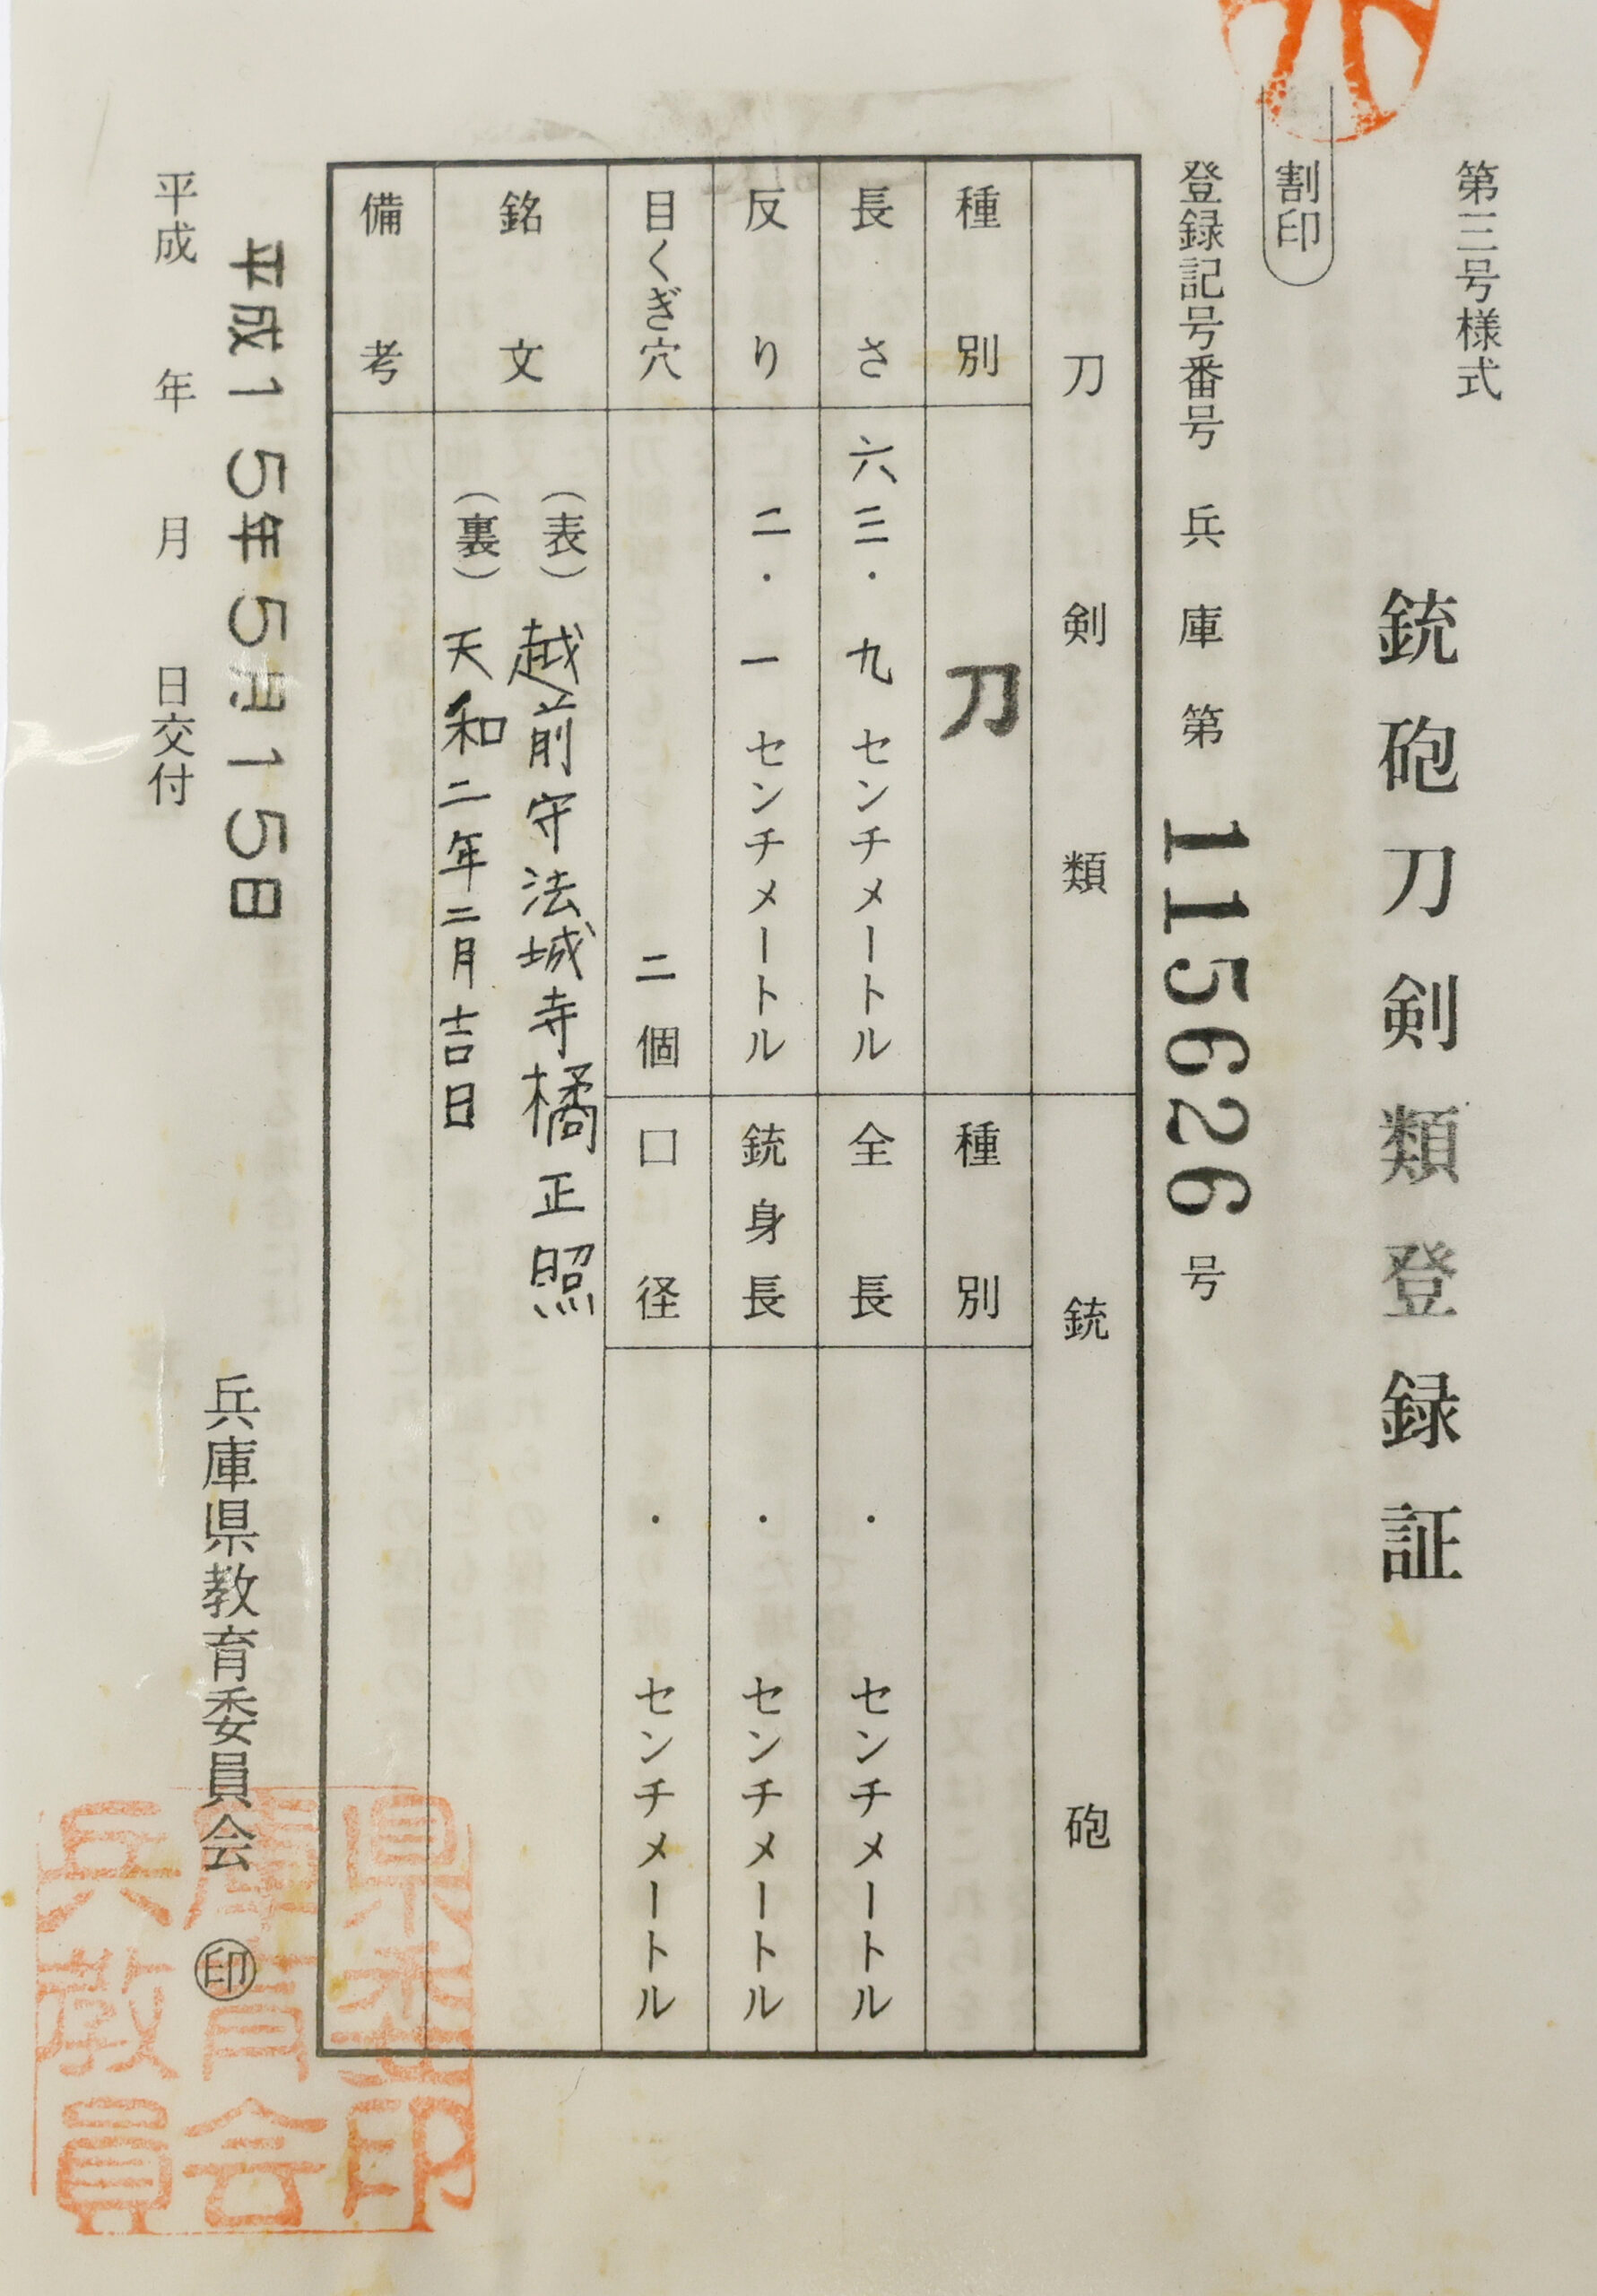 第三号様式
銃砲刀剣類登録証
割印
登録記号番号 兵庫第 115626 号
刀剣類
種別 刀
長さ 六三・九 センチメートル
反り 二・一 センチメートル
目くぎ穴 二個
銃砲
種別
全長 ・ センチメートル
銃身長 ・ センチメートル
口径 ・ センチメートル
銘文
(表) 越前守法城寺橘正照
(裏) 天和二年二月吉日
備考
平成15年5月15日
平成 年 月 日交付
兵庫県教育委員会 ㊞